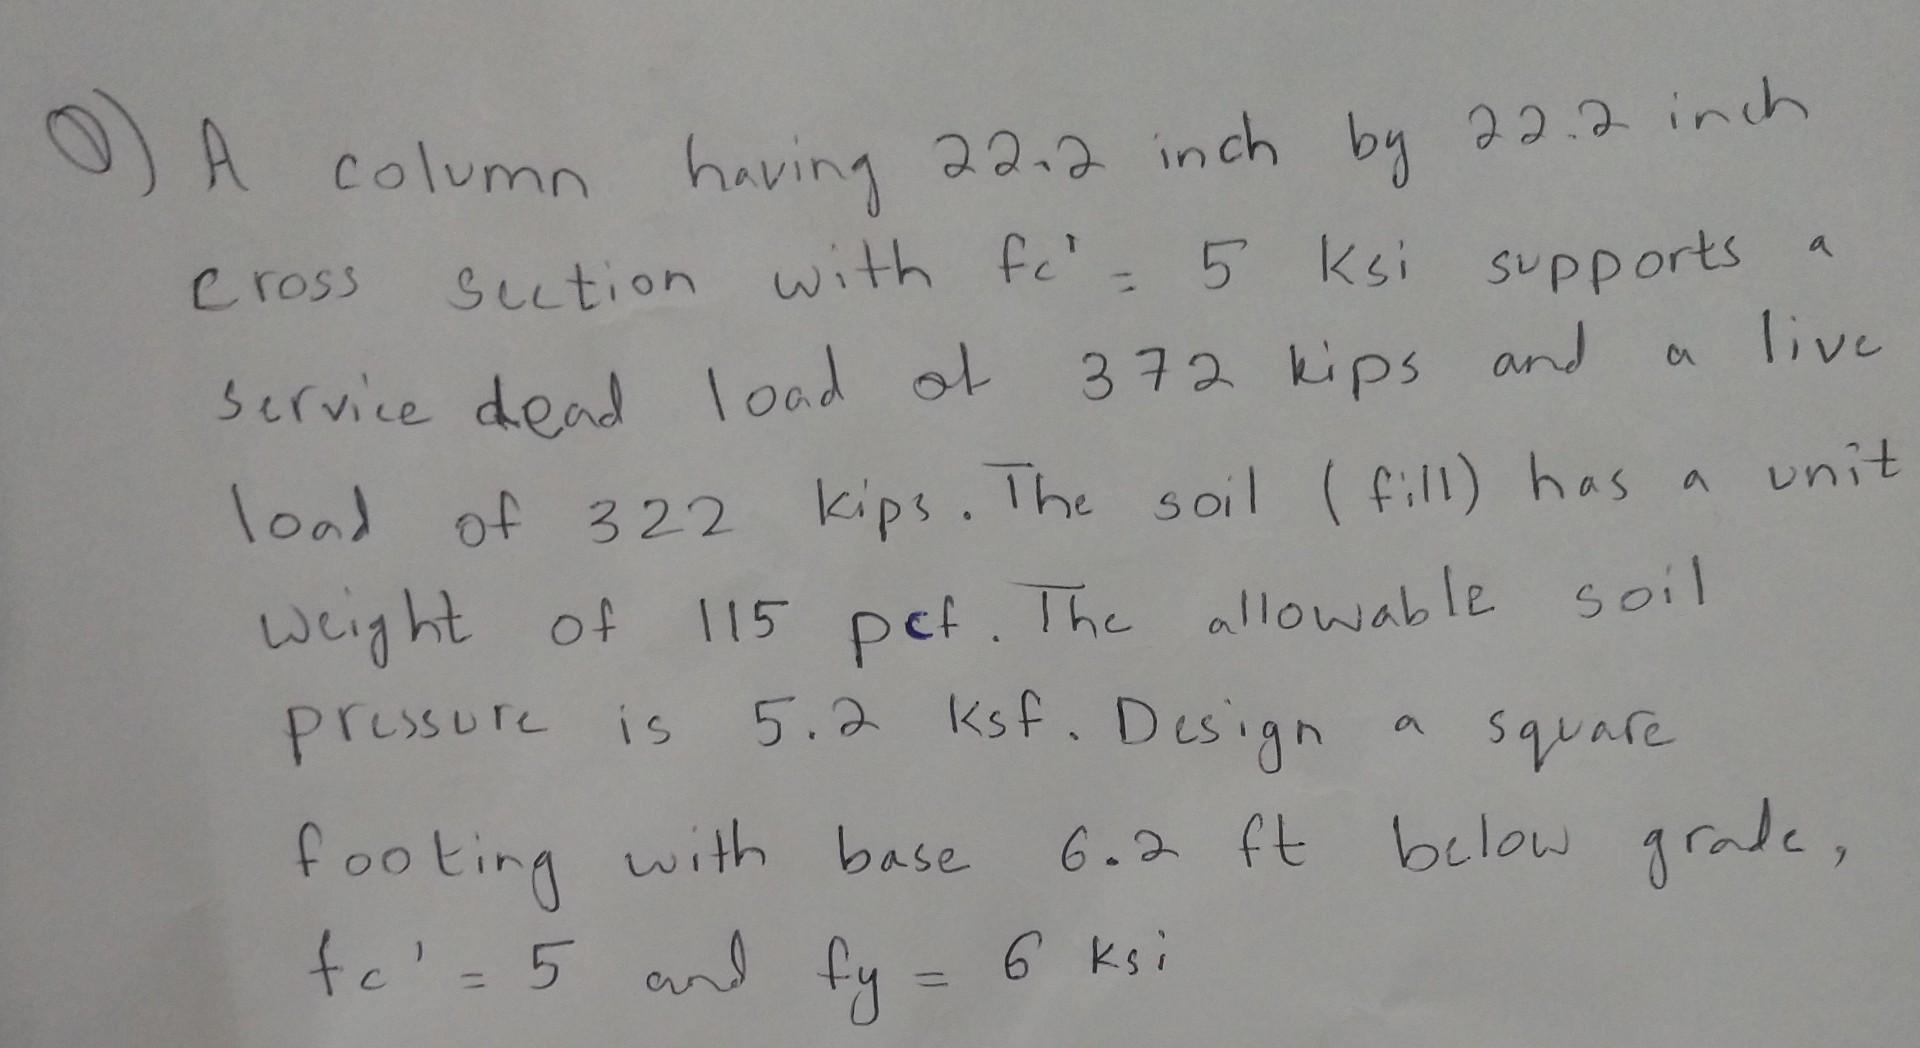 Q) A column having 22.2 inch by 22.2 inch
cross section with fc' = 5 ksi supports a
service dead load of 372 kips and a live
load of 322 kips. The soil (fill) has a unit
weight of 115 pcf. The allowable soil
pressure is 5.2 ksf. Design a square
footing with base 6.2 ft below grade,
fc' = 5 and fy = 6 ksi